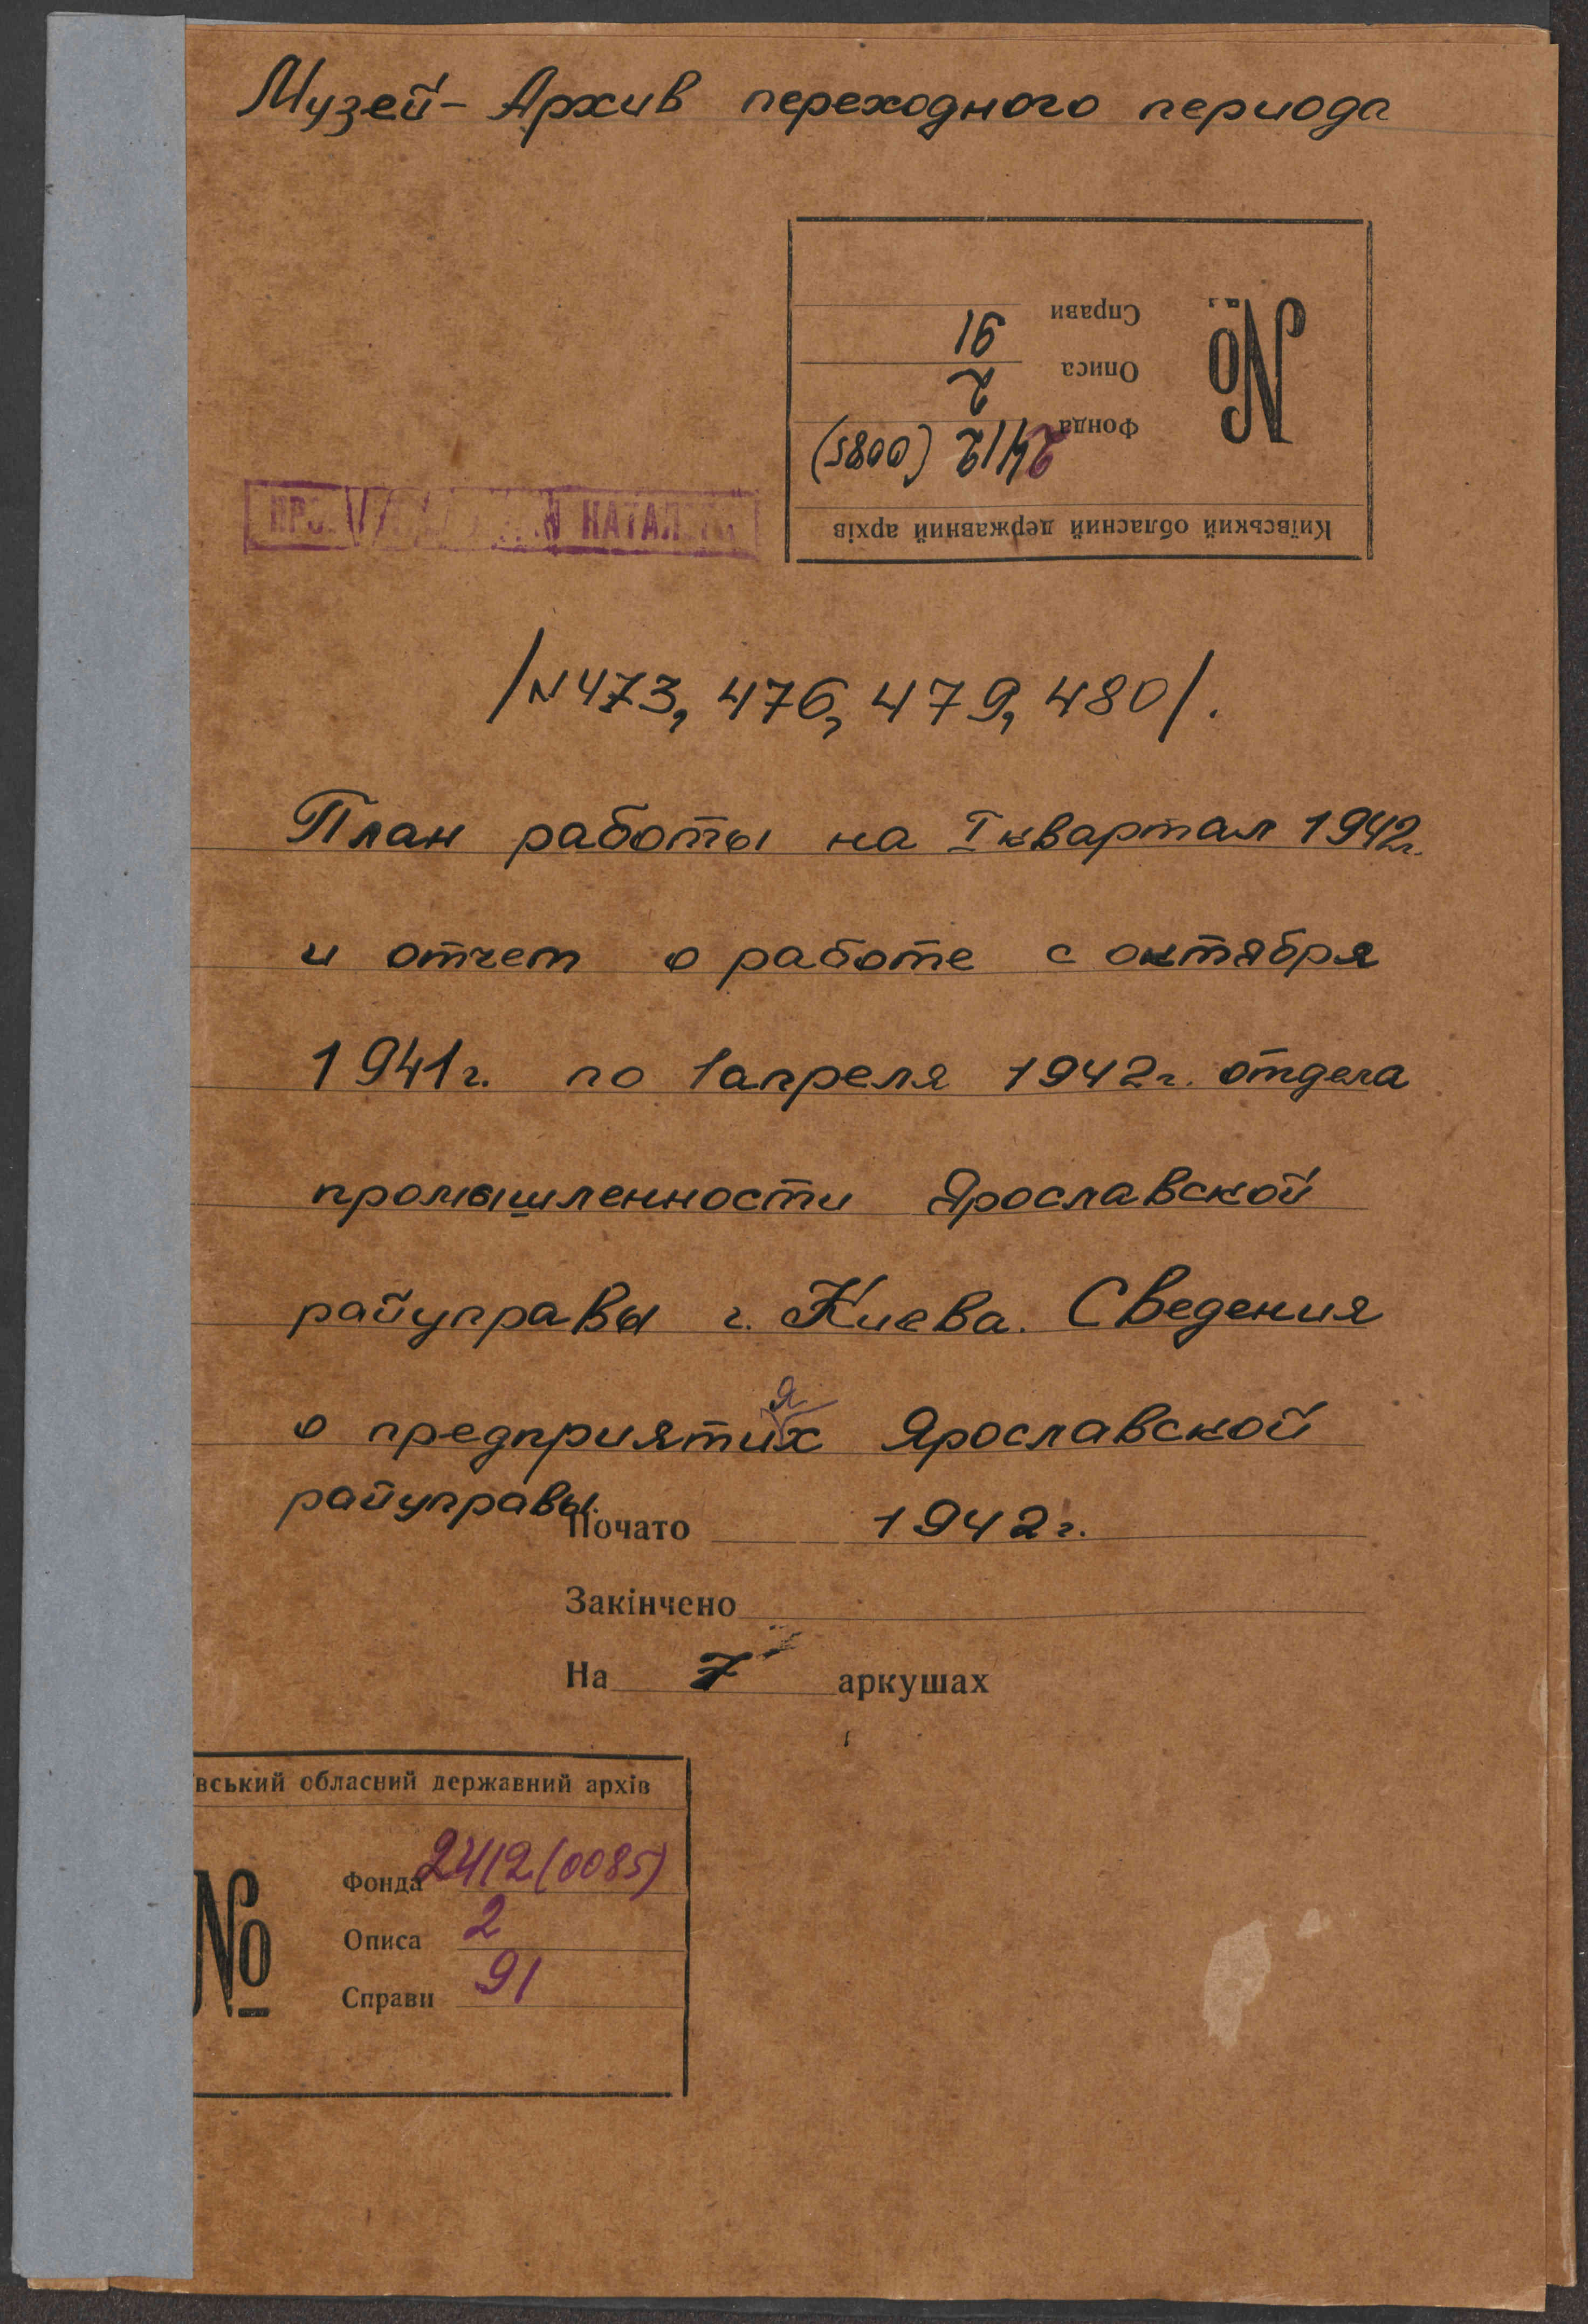 Музей-Архив переходного периода
№
Справи 91
Описа 2
Фонда 2412 (0085)
Київський обласний державний архів
/N 473, 476, 479, 480/.
План работы на I квартал 1942г.
и отчет о работе с октября
1941г. по 1 апреля 1942г. отдела
промышленности Ярославской
райуправы г. Киева. Сведения
о предприятиях Ярославской
райуправы.
Почато 1942г.
Закінчено
На 7 аркушах
ївський обласний державний архів
№
Фонда 2412 (0085)
Описа 2
Справи 91